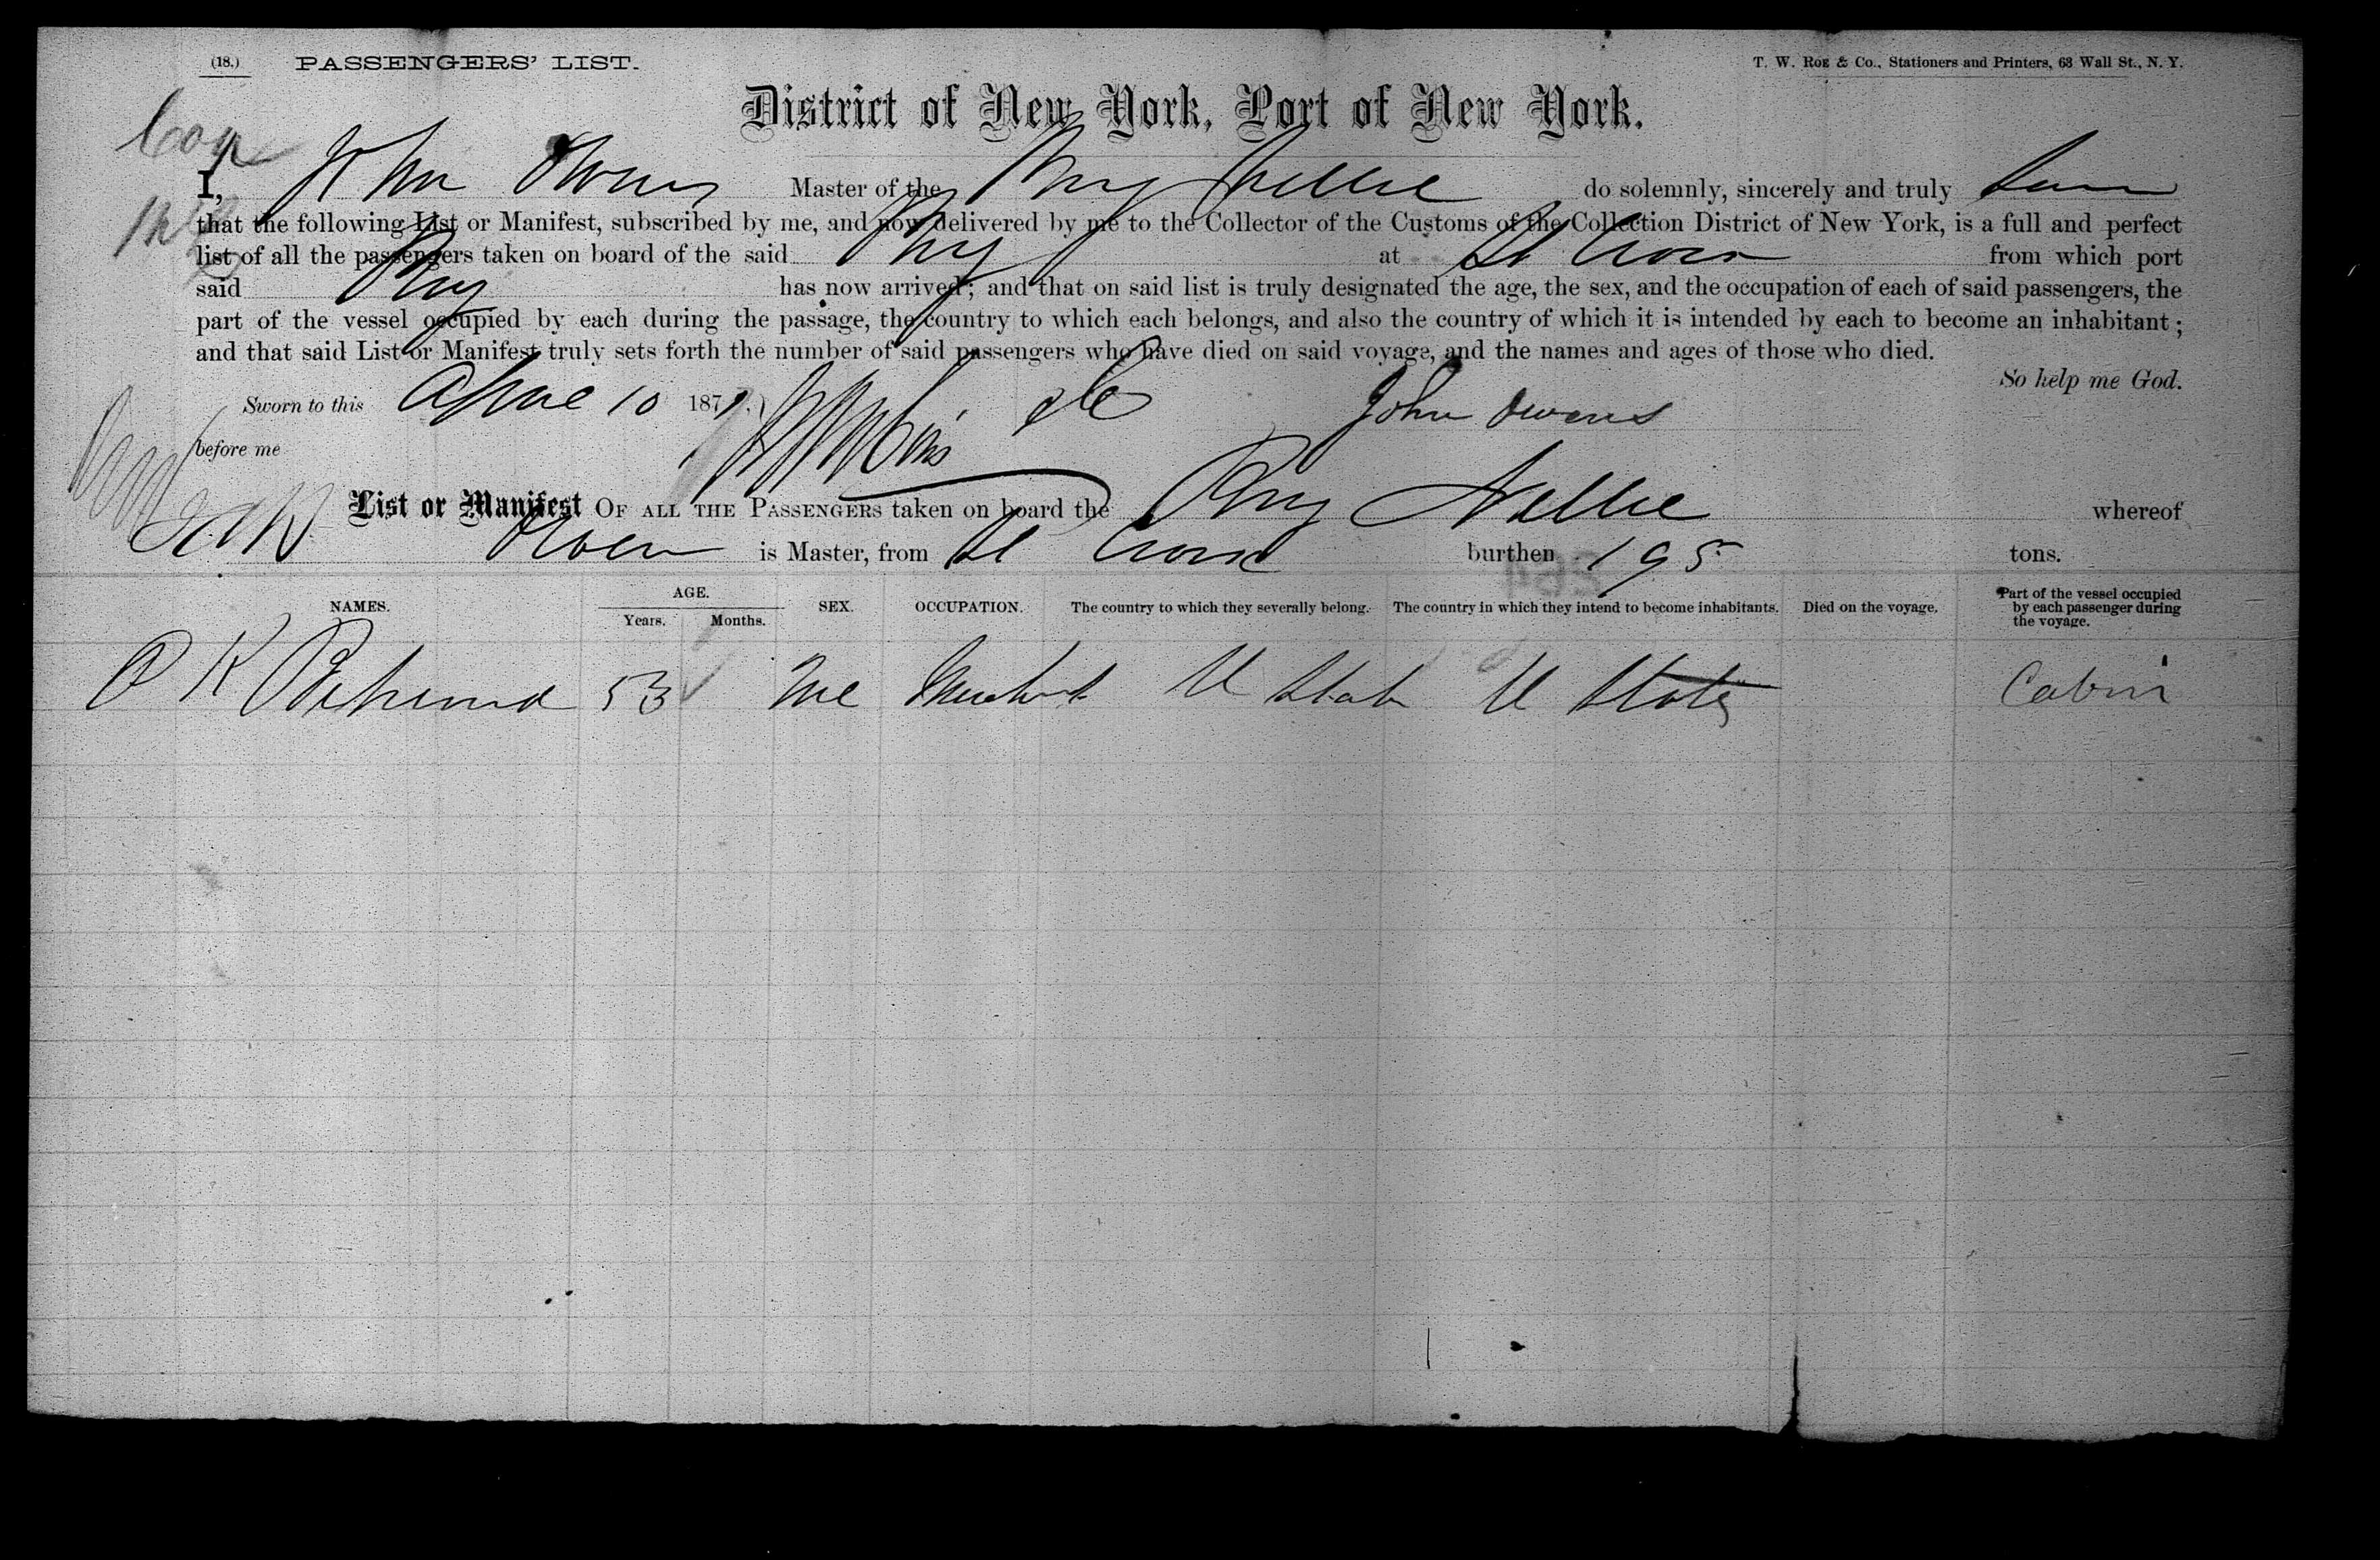 (18.) PASSENGERS' LIST. T. W. Roe & Co., Stationers and Printers, 63 Wall St., N. Y.
District of New York, Port of New York.
I, John Owens Master of the Brig Nellie do solemnly, sincerely and truly
that the following List or Manifest, subscribed by me, and now delivered by me to the Collector of the Customs of the Collection District of New York, is a full and perfect
list of all the passengers taken on board of the said Brig at St Croix from which port
said Brig has now arrived; and that on said list is truly designated the age, the sex, and the occupation of each of said passengers, the
part of the vessel occupied by each during the passage, the country to which each belongs, and also the country of which it is intended by each to become an inhabitant;
and that said List or Manifest truly sets forth the number of said passengers who have died on said voyage, and the names and ages of those who died.
So help me God.
Sworn to this April 10 187 John Owens
before me
List or Manifest OF ALL THE PASSENGERS taken on board the Brig Nellie whereof
Owen is Master, from St Croix burthen 195 tons.
NAMES. AGE. Years. Months. SEX. OCCUPATION. The country to which they severally belong. The country in which they intend to become inhabitants. Died on the voyage. Part of the vessel occupied by each passenger during the voyage.
53 U State U States Cabin